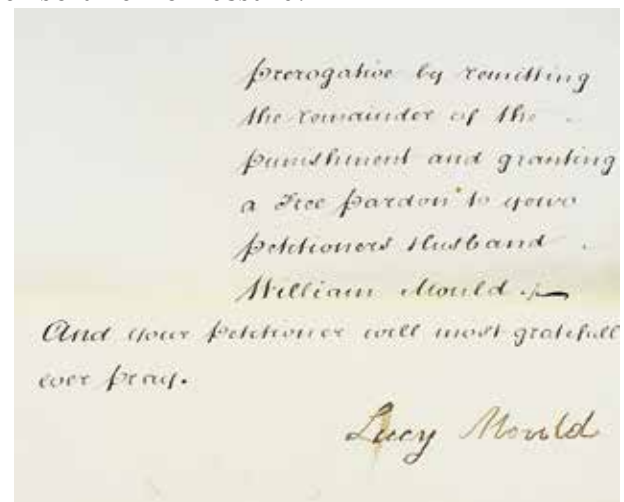 prerogative by remitting
the remainder of the
punishment and granting
a Free pardon to your
petitioners Husband
William Mould
And your petitioner will most gratefull
ever pray.
Lucy Mould